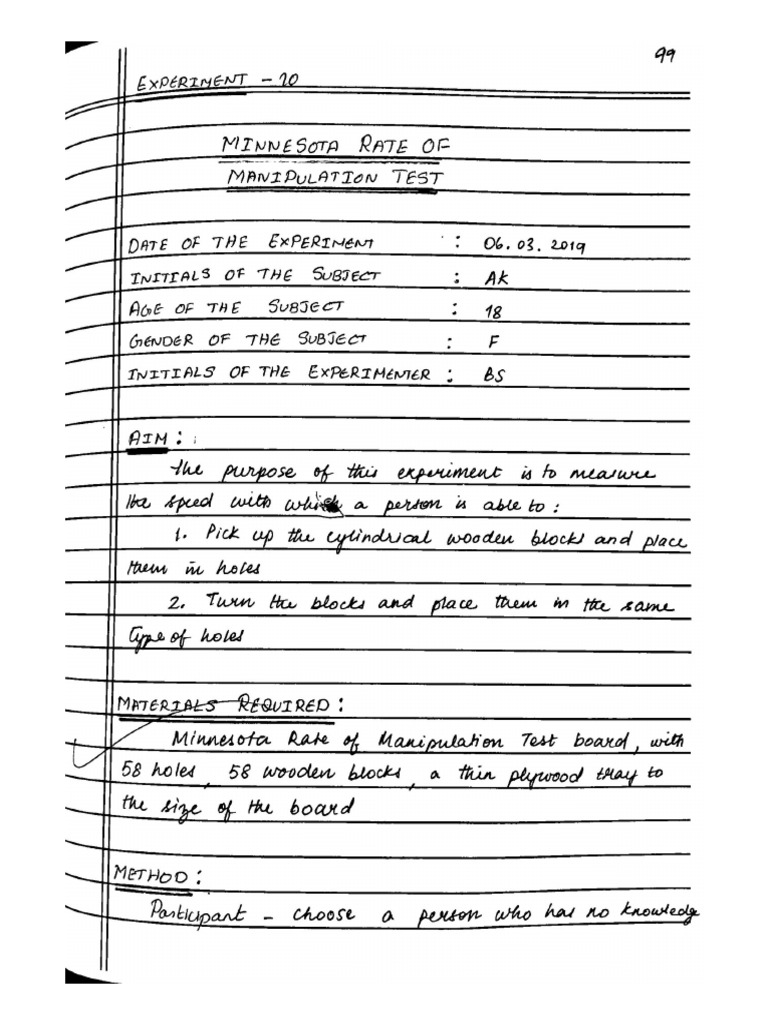 99
EXPERIMENT - 20
MINNESOTA RATE OF
MANIPULATION TEST
DATE OF THE EXPERIMENT : 06.03.2019
INITIALS OF THE SUBJECT : AK
AGE OF THE SUBJECT : 18
GENDER OF THE SUBJECT : F
INITIALS OF THE EXPERIMENTER : BS
AIM :
The purpose of this experiment is to measure
the speed with which a person is able to :
1. Pick up the cylindrical wooden blocks and place
them in holes
2. Turn the blocks and place them in the same
type of holes
MATERIALS REQUIRED :
Minnesota Rate of Manipulation Test board, with
58 holes, 58 wooden blocks, a thin plywood tray to
the size of the board
METHOD :
Participant - choose a person who has no knowledge